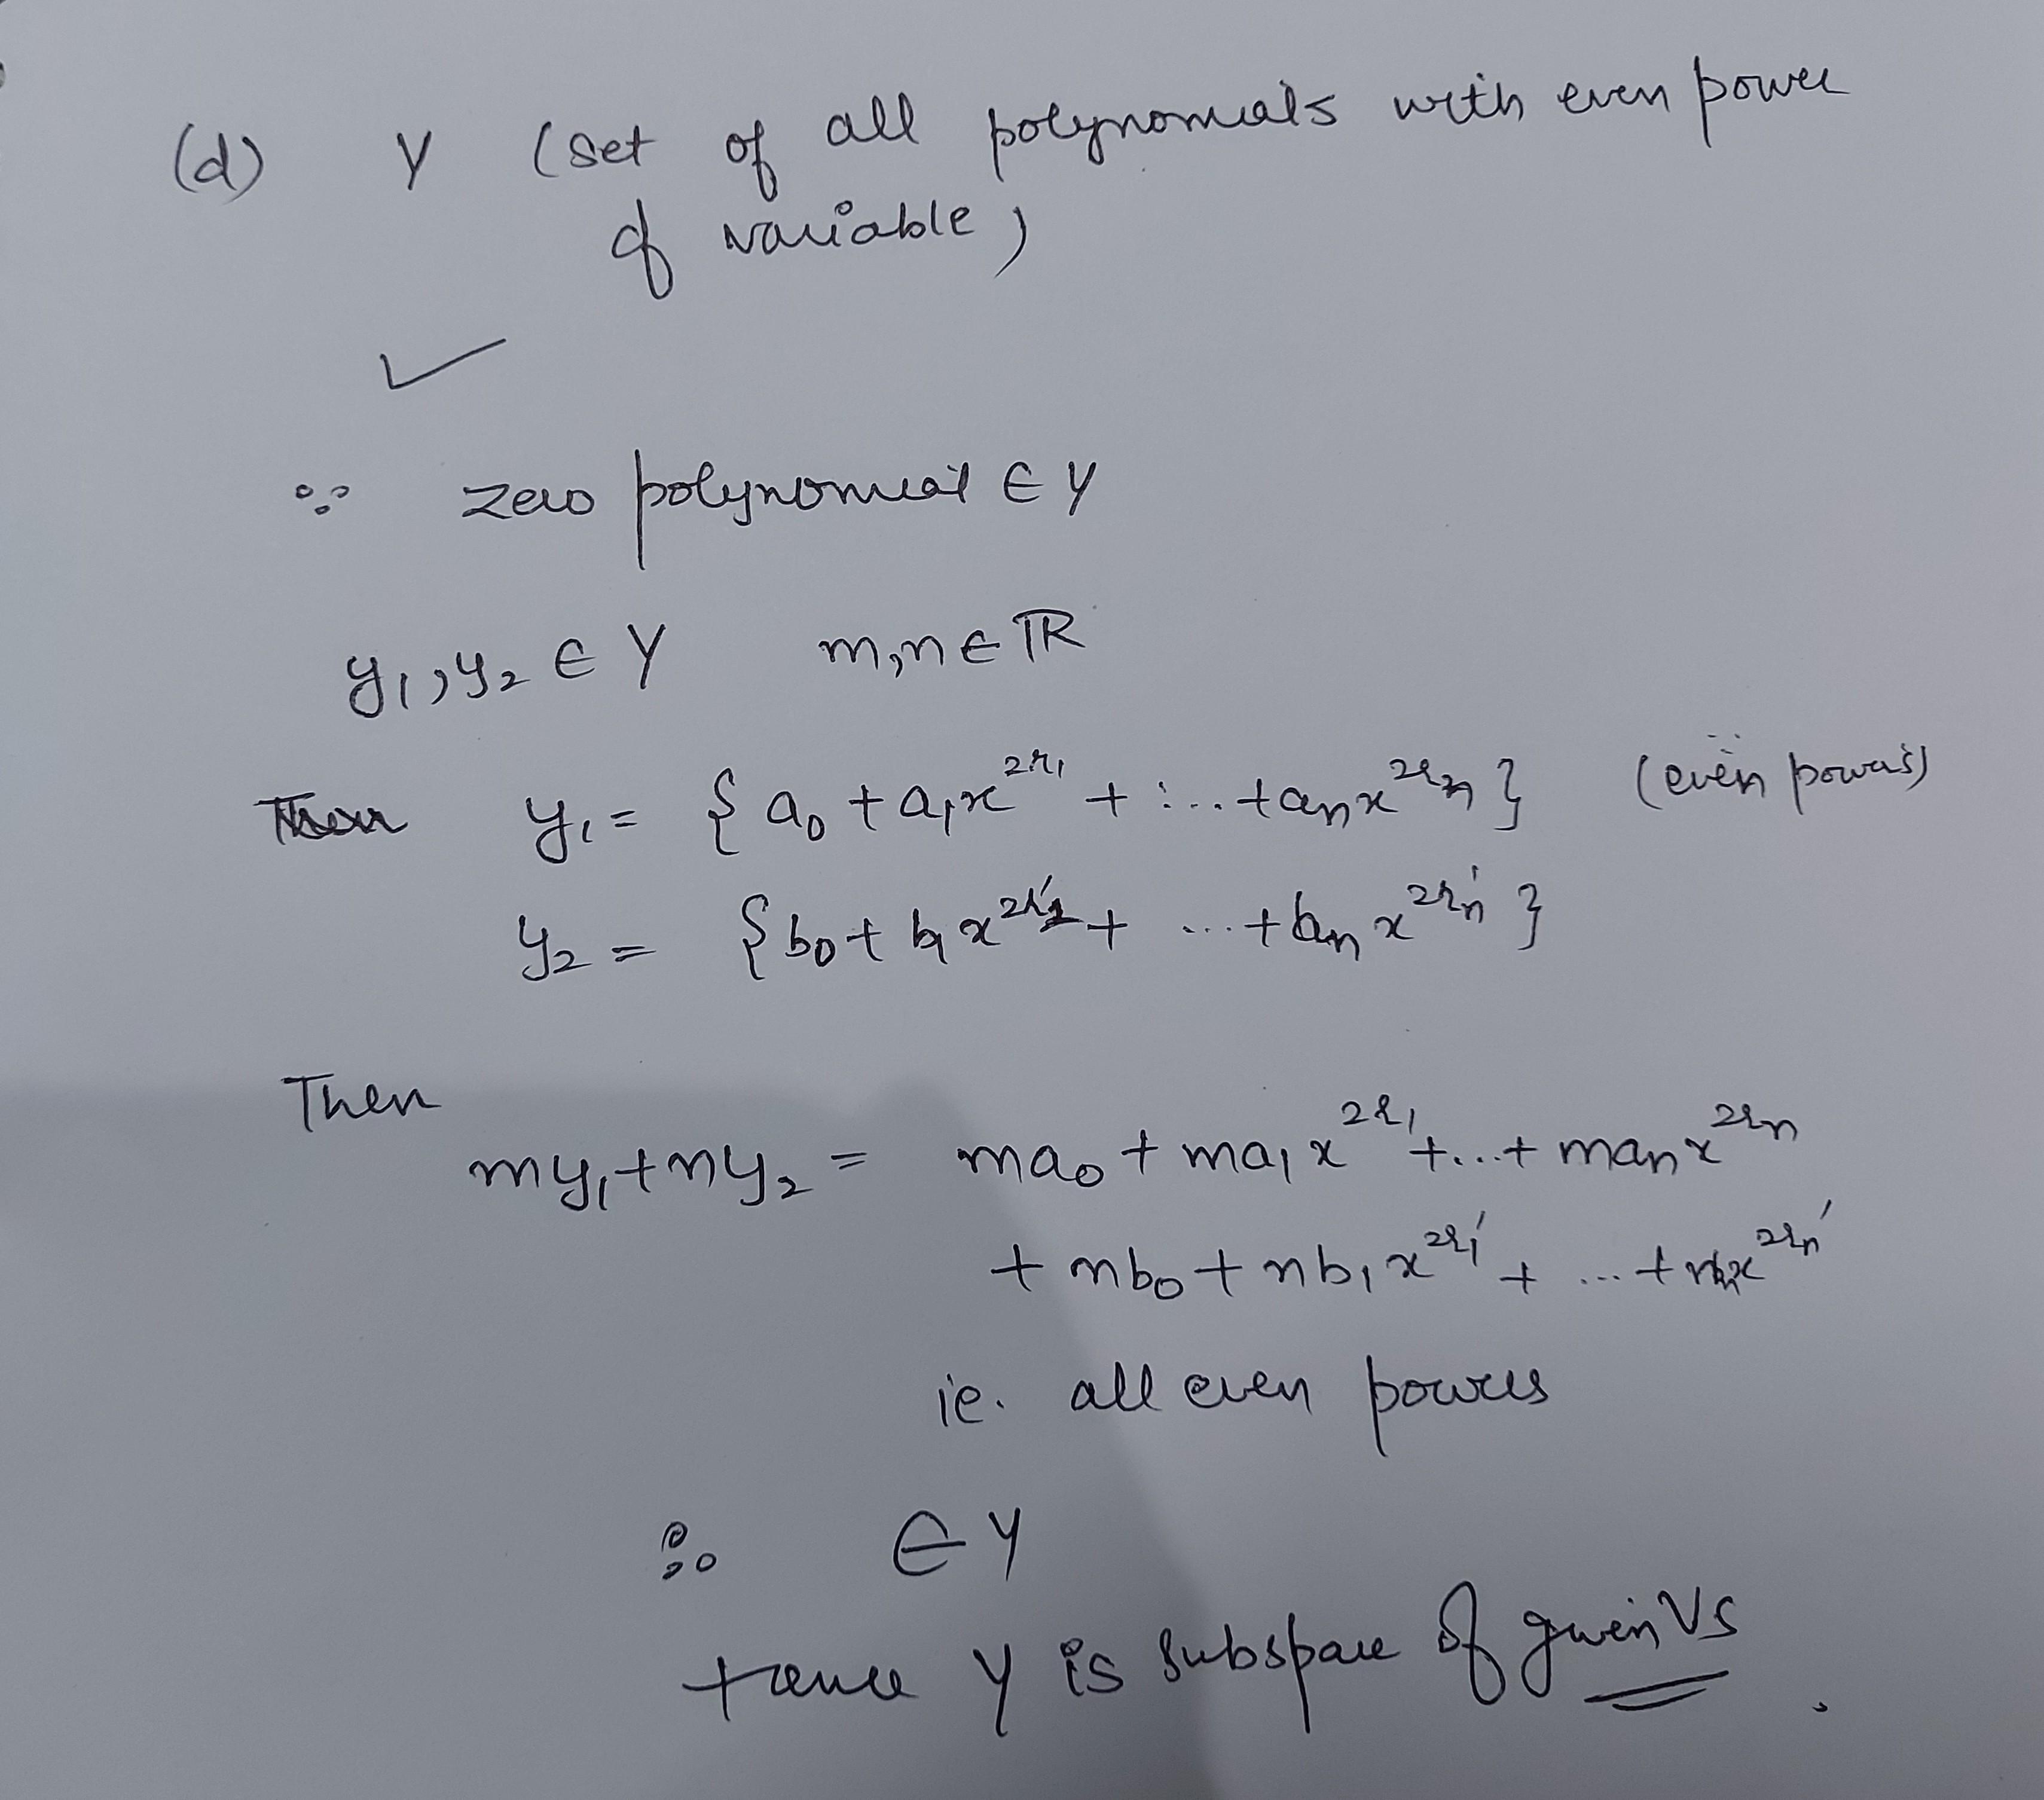 (d) Y (set of all polynomials with even power
of variable)
✓
∵ zero polynomial ∈ Y
y₁, y₂ ∈ Y m, n ∈ ℝ
Then y₁ = { a₀ + a₁x^{2r₁} + ... + aₙx^{2rₙ} } (even powers)
y₂ = { b₀ + b₁x^{2r'₁} + ... + bₙx^{2r'ₙ} }
Then
my₁ + ny₂ = ma₀ + ma₁x^{2r₁} + ... + maₙx^{2rₙ}
+ nb₀ + nb₁x^{2r₁'} + ... + nbₙx^{2rₙ'}
ie. all even powers
∴ ∈ Y
Hence Y is subspace of given VS.